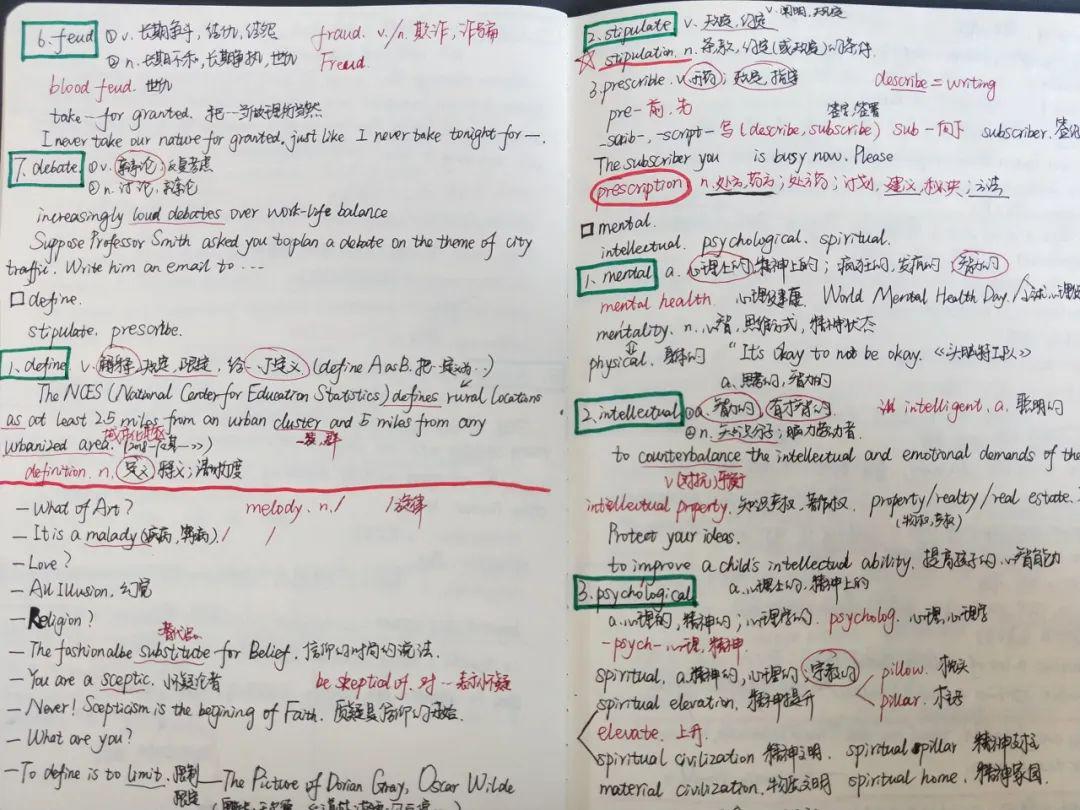 6. feud ① v. 长期争斗, 结仇, 结怨 fraud. v./n. 欺诈, 诈骗
② n. 长期不和, 长期争执, 世仇 Freud.
blood feud. 世仇
take…for granted. 把…当做理所当然
I never take our nature for granted, just like I never take tonight for —.
7. debate ① v. 辩论, 反复考虑
② n. 讨论, 辩论
increasingly loud debates over work-life balance
Suppose Professor Smith asked you to plan a debate on the theme of city
traffic. Write him an email to …
□ define.
stipulate, prescribe.
1. define v. 解释, 规定, 限定, 给…下定义 (define A as B. 把…定义为…)
The NCES (National Center for Education Statistics) defines rural locations
as at least 25 miles from an urban cluster and 5 miles from any
一簇, 群
urbanized area.
definition. n. 定义, 释义; 清晰度
— What of Art? melody. n. / 旋律
— It is a malady (疾病, 弊病). /
— Love?
— An Illusion. 幻觉
— Religion?
替代品
— The fashionalbe substitute for Belief. 信仰的时尚的说法.
— You are a sceptic. 怀疑论者 be skeptial of. 对…表示怀疑
— Never! Scepticism is the begining of Faith. 质疑是信仰的开始.
— What are you?
— To define is to limit. 限制 — The Picture of Dorian Gray, Oscar Wilde
限定
2. stipulate v. 规定, 约定 v. 阐明, 规定
☆ stipulation. n. 条款, 约定(或规定)的条件
3. prescribe. v. 开药; 规定, 指定 describe = writing
pre- 前, 先 签定, 签署
-scrib-, -script- 写 (describe, subscribe) sub- 向下 subscriber.
The subscriber you is busy now. Please
prescription n. 处方, 药方; 处方药; 计划, 建议, 秘诀; 方法
□ mental.
intellectual. psychological. spiritual.
1. mental a. 心理上的, 精神上的; 疯狂的, 发病的; 智力的
mental health. 心理健康 World Mental Health Day.
mentality. n. 心智, 思维方式, 精神状态
physical. 身体的 "It's Okay to not be okay. 《头脑特工队》
a. 思考的, 智力的
2. intellectual ① a. 智力的, 有才智的. intelligent. a. 聪明的
② n. 知识分子; 脑力劳动者.
to counterbalance the intellectual and emotional demands of the
v (对抗) 平衡
intellectual property. 知识产权, 著作权. property/realty/real estate.
(物权, 产权)
Protect your ideas.
to improve a child's intellectual ability. 提高孩子的心智能力
3. psychological a. 心理上的, 精神上的
a. 心理的, 精神的; 心理学的. psycholog. 心理, 心理学
-psych- 心理, 精神
spiritual. a. 精神的, 心理的; 宗教的 pillow. 枕头
spiritual elevation. 精神提升 pillar. 柱子
elevate. 上升.
spiritual civilization 精神文明. spiritual pillar 精神支柱
material civilization. 物质文明 spiritual home. 精神家园.